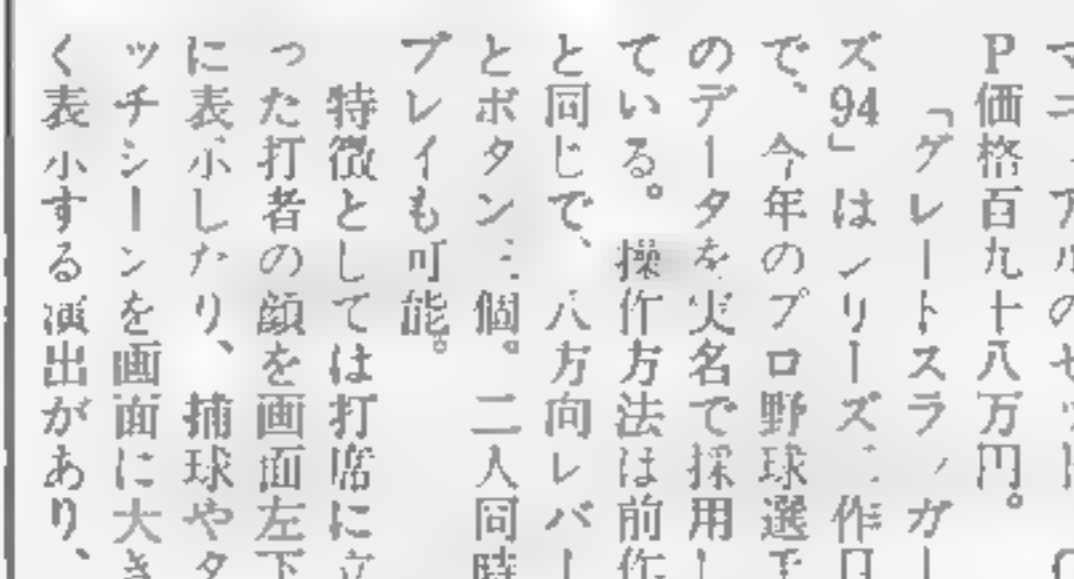 P価格百九十八万円。
「グレートスラッガー
ズ94」はシリーズ二作目
で、今年のプロ野球選手
のデータを実名で採用し
ている。操作方法は前作
と同じで、八方向レバー
とボタン三個。二人同時
プレイも可能。
特徴としては打席に立
った打者の顔を画面左下
に表示したり、捕球やタ
ッチシーンを画面に大き
く表示する演出があり、